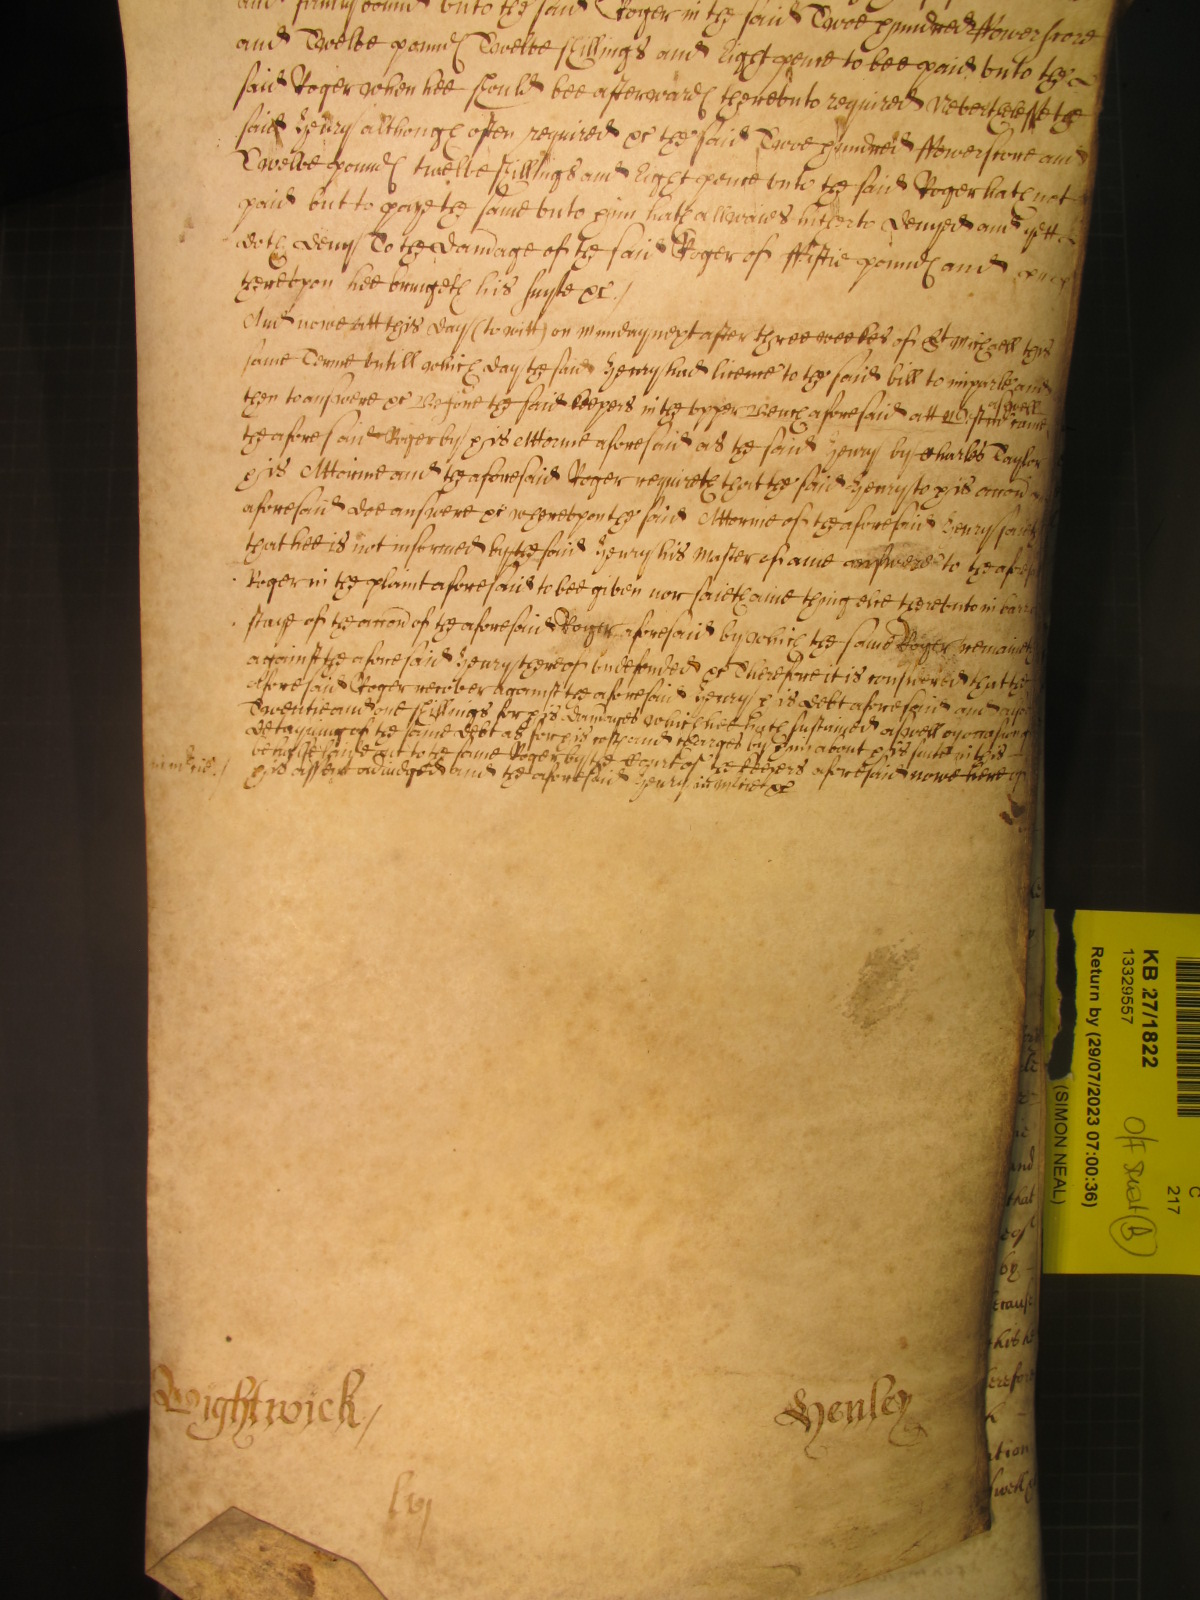 and firmly bound unto the said Roger in the said Twoe hundred ffowerscore
and Twelve pounds Twelve shillings and Eight pence to bee paid unto the
said Roger when hee should bee afterwards thereunto required Neverthelesse the
said Henry although often required &c the said Twoe hundred ffowerscore and
Twelve pounds twelve shillings and Eight pence unto the said Roger hath not
paid but to paye the same unto him hath allwaies hitherto denyed and yett
doth deny To the damage of the said Roger of ffiftie pounds and
thereupon hee bringeth his suyte &c /
And nowe att this day (to witt) on Munday next after three weekes of St Michaell this
same Terme untill which day the said Henry had licence to the said bill to imparle and
then to answere &c Before the said keepers in the upper bench aforesaid att Westm came
aswell
the aforesaid Roger by his Attorne aforesaid as the said Henry by Charles Taylor
his Attorne and the aforesaid Roger requireth that the said Henry to his accon
aforesaid doe answere &c whereupon the said Attorne of the aforesaid Henry saith
that hee is not informed by the said Henry his Master of anie answere to the afores
Roger in the plaint aforesaid to bee given nor saieth anie thing else thereunto in barre
staye of the accon of the aforesaid Roger aforesaid by which the same Roger remaineth
against the aforesaid Henry thereof undefended &c Therefore it is considered that the
aforesaid Roger recover against the aforesaid Henry his debt aforesaid and
Twentie and one shillings for his damages which hee hath sustained aswell by occasion of
detayning of the same debt as for his costs and charges by him about his suite in this
behalfe laine out to the same Roger by the Court of the keepers aforesaid nowe here
his assent adiudged and the aforesaid Henry in mercie &c
Wightwick /
Henley
lvj
KB 27/1822
13329557
Return by (29/07/2023 07:00:36)
(SIMON NEAL)
C
217